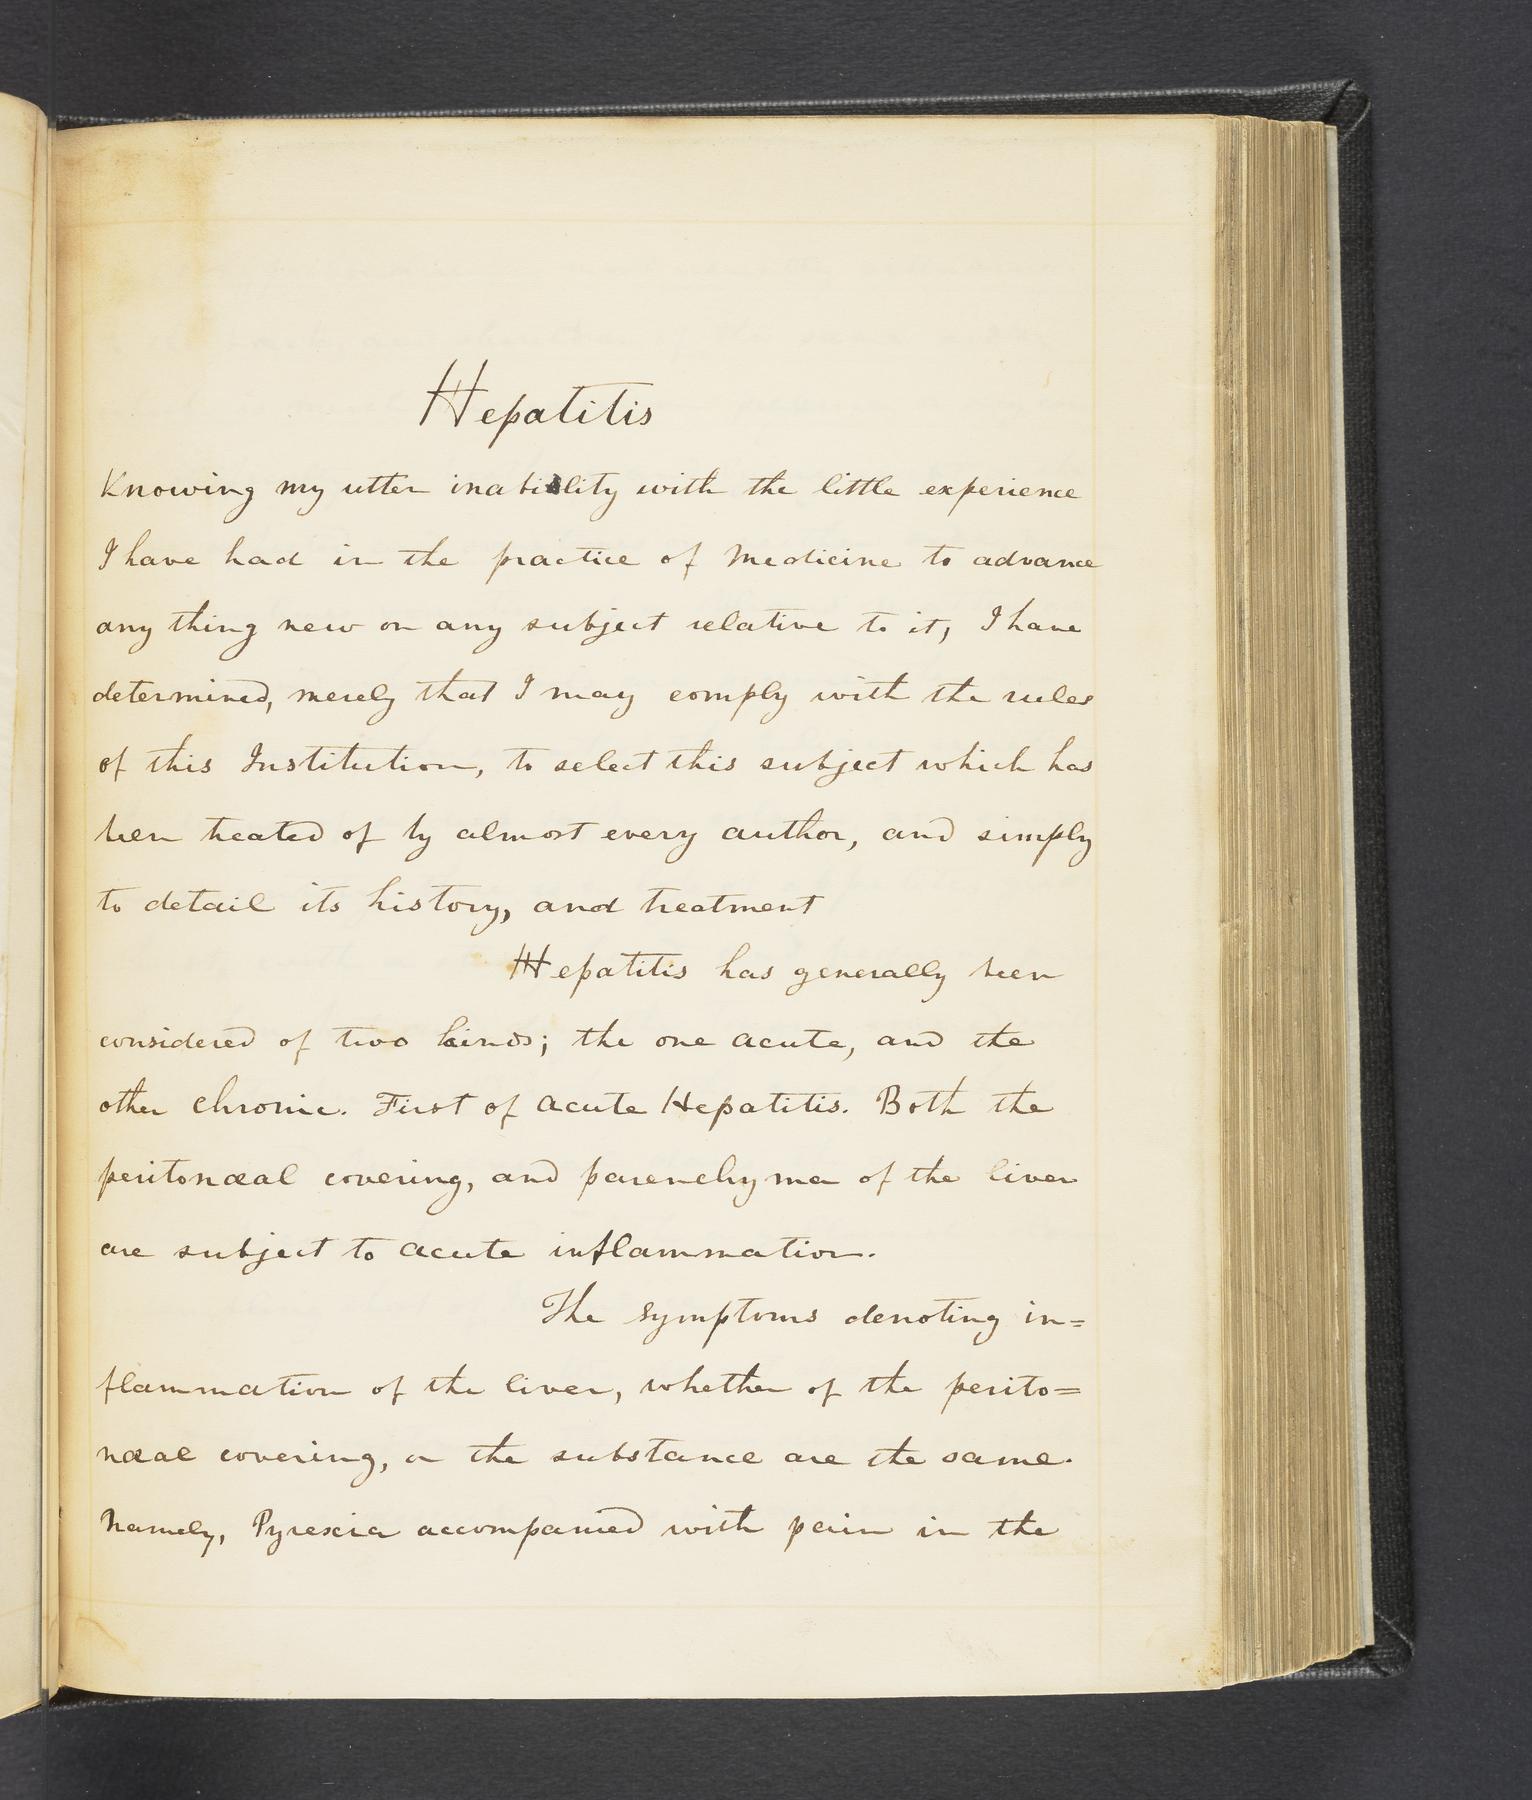 Hepatitis
Knowing my utter inability with the little experience
I have had in the practice of Medicine to advance
any thing new on any subject relative to it, I have
determined, merely that I may comply with the rules
of this Institution, to select this subject which has
been treated of by almost every author, and simply
to detail its history, and treatment
Hepatitis has generally been
considered of two kinds; the one acute, and the
other chronic. First of acute Hepatitis. Both the
peritonæal covering, and parenchyma of the liver
are subject to acute inflammation.
The symptoms denoting in=
flammation of the liver, whether of the perito=
næal covering, or the substance are the same.
Namely, Pyrexia accompanied with pain in the